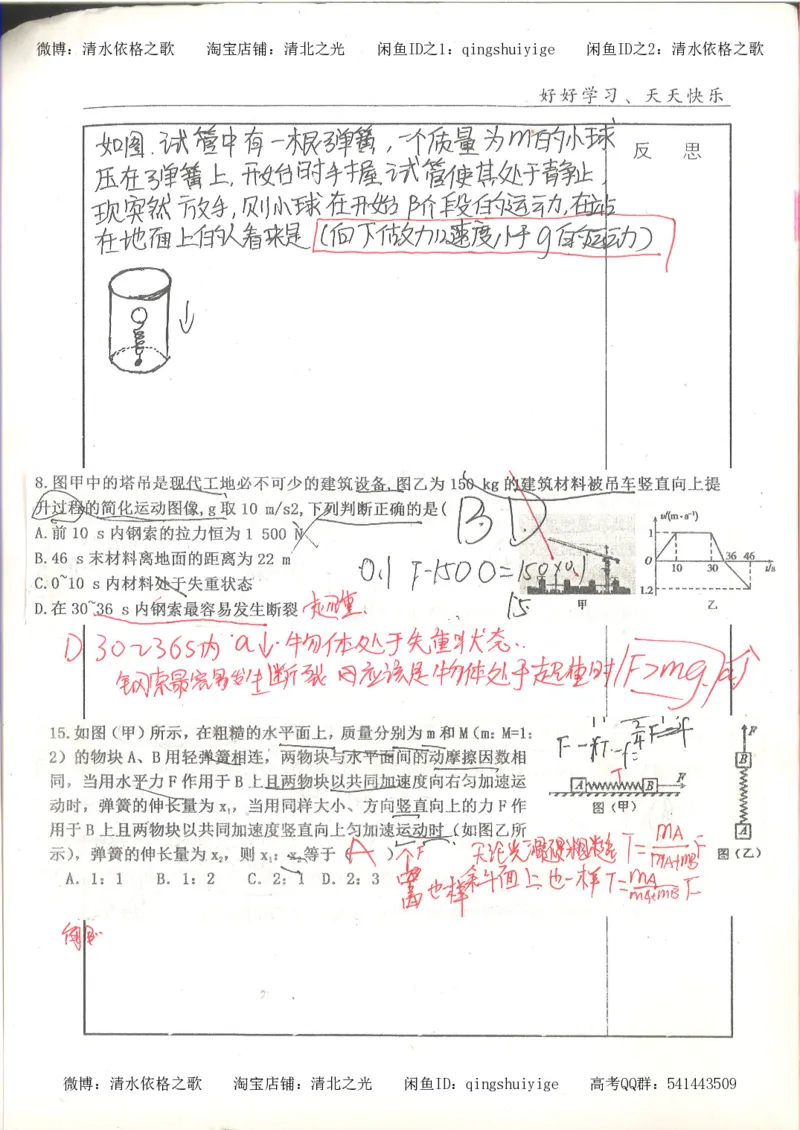 微博：清水依格之歌 淘宝店铺：清北之光 闲鱼ID之1：qingshuiyige 闲鱼ID之2：清水依格之歌
好好学习、天天快乐
反 思
如图.试管中有一根弹簧，一个质量为m的小球
压在弹簧上，开始时手握试管使其处于静止，
现突然放手，则小球在开始阶段的运动，在站
在地面上的人看来是（向下做加速度小于g的运动）
8.图甲中的塔吊是现代工地必不可少的建筑设备,图乙为 150 kg 的建筑材料被吊车竖直向上提
升过程的简化运动图像,g 取 10 m/s2,下列判断正确的是(
B D
A.前 10 s 内钢索的拉力恒为 1 500 N
B.46 s 末材料离地面的距离为 22 m
C.0~10 s 内材料处于失重状态
D.在 30~36 s 内钢索最容易发生断裂 超重.
0.1 F-1500=150×0.1
15
v/(m·s⁻¹)
1
0
10 30 36 46
t/s
1.2
甲 乙
D 30~36s内 a↓.物体处于失重状态.
钢索最容易发生断裂 因应该是物体处于超重时 F>mg. a↑
15.如图（甲）所示，在粗糙的水平面上，质量分别为 m 和 M（m：M=1：
2）的物块 A、B 用轻弹簧相连，两物块与水平面间的动摩擦因数相
同，当用水平力 F 作用于 B 上且两物块以共同加速度向右匀加速运
动时，弹簧的伸长量为 x₁，当用同样大小、方向竖直向上的力 F 作
用于 B 上且两物块以共同加速度竖直向上匀加速运动时（如图乙所
示），弹簧的伸长量为 x₂，则 x₁：x₂等于（ A ）
A．1：1 B．1：2 C．2：1 D．2：3
T
A B F
图（甲）
F
B
A
图（乙）
无论光滑还是粗糙 T=mA/(mA+mB) F
F
也一样 斜面上也一样 T=mA/(mA+mB) F
微博：清水依格之歌 淘宝店铺：清北之光 闲鱼ID：qingshuiyige 高考QQ群：541443509